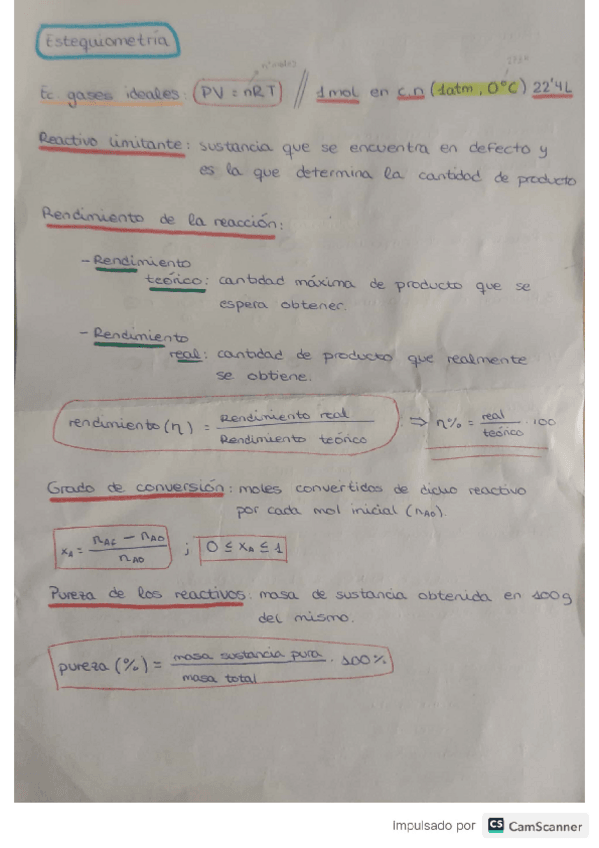 Estequiometría
nº moles
273K
Ec. gases ideales: PV = nRT // 1mol en c.n (1atm, 0ºC) 22'4L
Reactivo limitante: sustancia que se encuentra en defecto y
es la que determina la cantidad de producto
Rendimiento de la reacción:
- Rendimiento
teórico: cantidad máxima de producto que se
espera obtener.
- Rendimiento
real: cantidad de producto que realmente
se obtiene.
rendimiento (η) = Rendimiento real / Rendimiento teórico ⇒ η% = real / teórico · 100
Grado de conversión: moles convertidos de dicho reactivo
por cada mol inicial (nAO).
xA = nAf - nAO / nAO ; 0 ≤ xA ≤ 1
Pureza de los reactivos: masa de sustancia obtenida en 100g
del mismo.
pureza (%) = masa sustancia pura / masa total · 100%
Impulsado por CS CamScanner